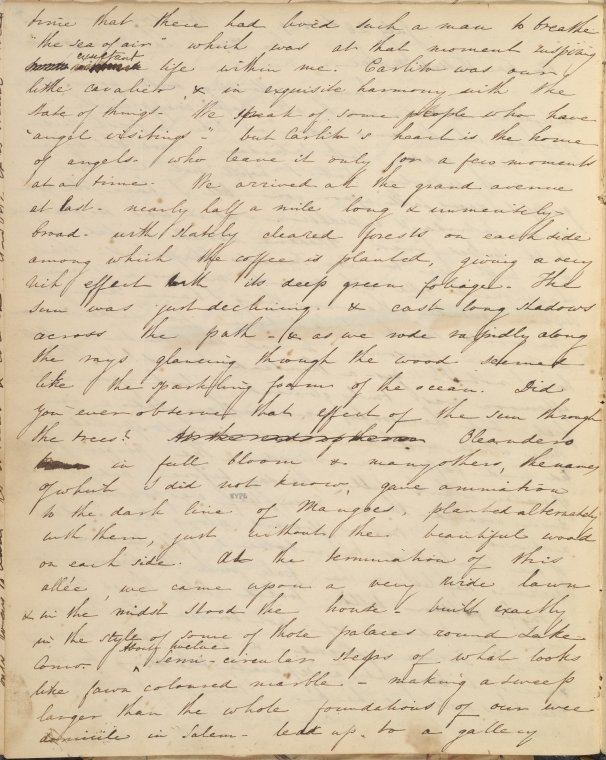 time that there had lived such a man to breathe
"the sea of air" which was at that moment inspiring
exultant
life within me. Carlito was our
little cavalier, & in exquisite harmony with the
state of things. We speak of some people who have
"angel visitings" - but Carlito's heart is the home
of angels - who leave it only for a few moments
at a time. We arrived at the grand avenue
at last - nearly half a mile long & immensely
broad - with stately cleared forests on each side
among which the coffee is planted, giving a very
rich effect with its deep green foliage. The
sun was just declining & cast long shadows
across the path - & as we rode rapidly along
the rays glancing through the wood seemed
like the sparkling foam of the ocean. Did
you ever observe that effect of the sun through
the trees? Oleanders
in full bloom & many others, the names
of which I did not know, gave animation
NYPL
to the dark line of Mangoes, planted alternately
with them, just without the beautiful wood
on each side. At the termination of this
allée, we came upon a very wide lawn
& in the midst stood the house - built exactly
in the style of some of those palaces round Lake
Como. semi-circular steps of what looks
twelve
like fawn coloured marble - making a sweep
larger than the whole foundations of our wee
domicile in Salem - lead up to a gallery